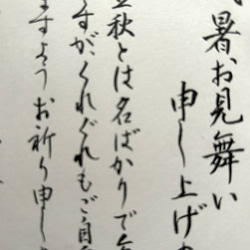 暑お見舞い
申し上げ
立秋とは名ばかりで
すが、くれぐれもご自
ますようお祈り申し